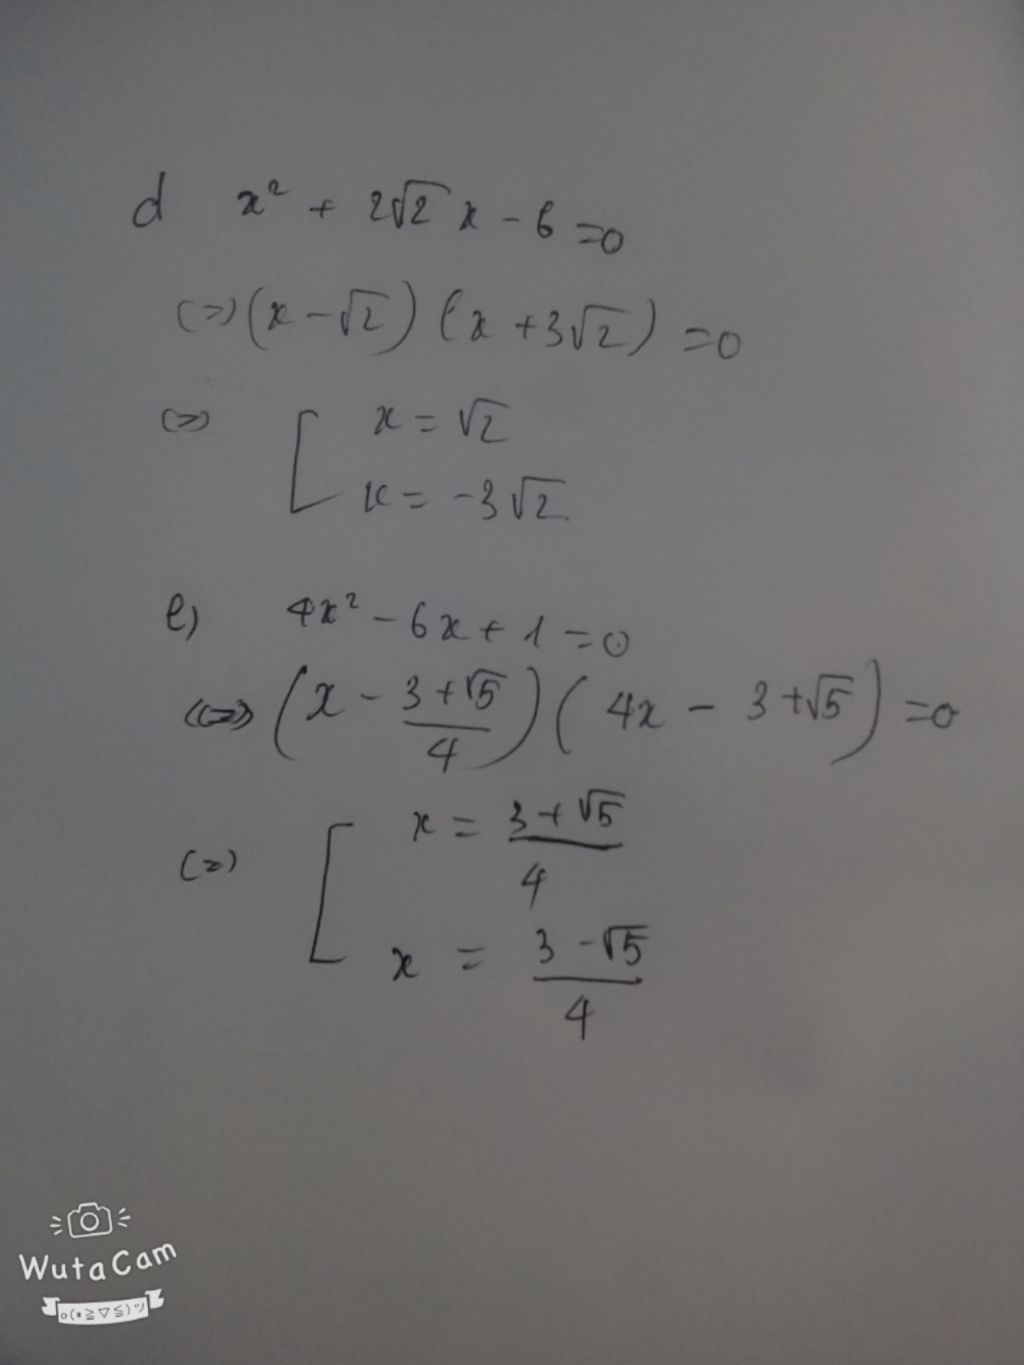 d x² + 2√2 x - 6 = 0
(=) (x - √2) (x + 3√2) = 0
(=) [ x = √2
x = -3√2
e) 4x² - 6x + 1 = 0
(=) (x - (3 + √5)/4) (4x - 3 + √5) = 0
(=) [ x = (3 + √5)/4
x = (3 - √5)/4
WutaCam
o(*≧▽≦)ツ